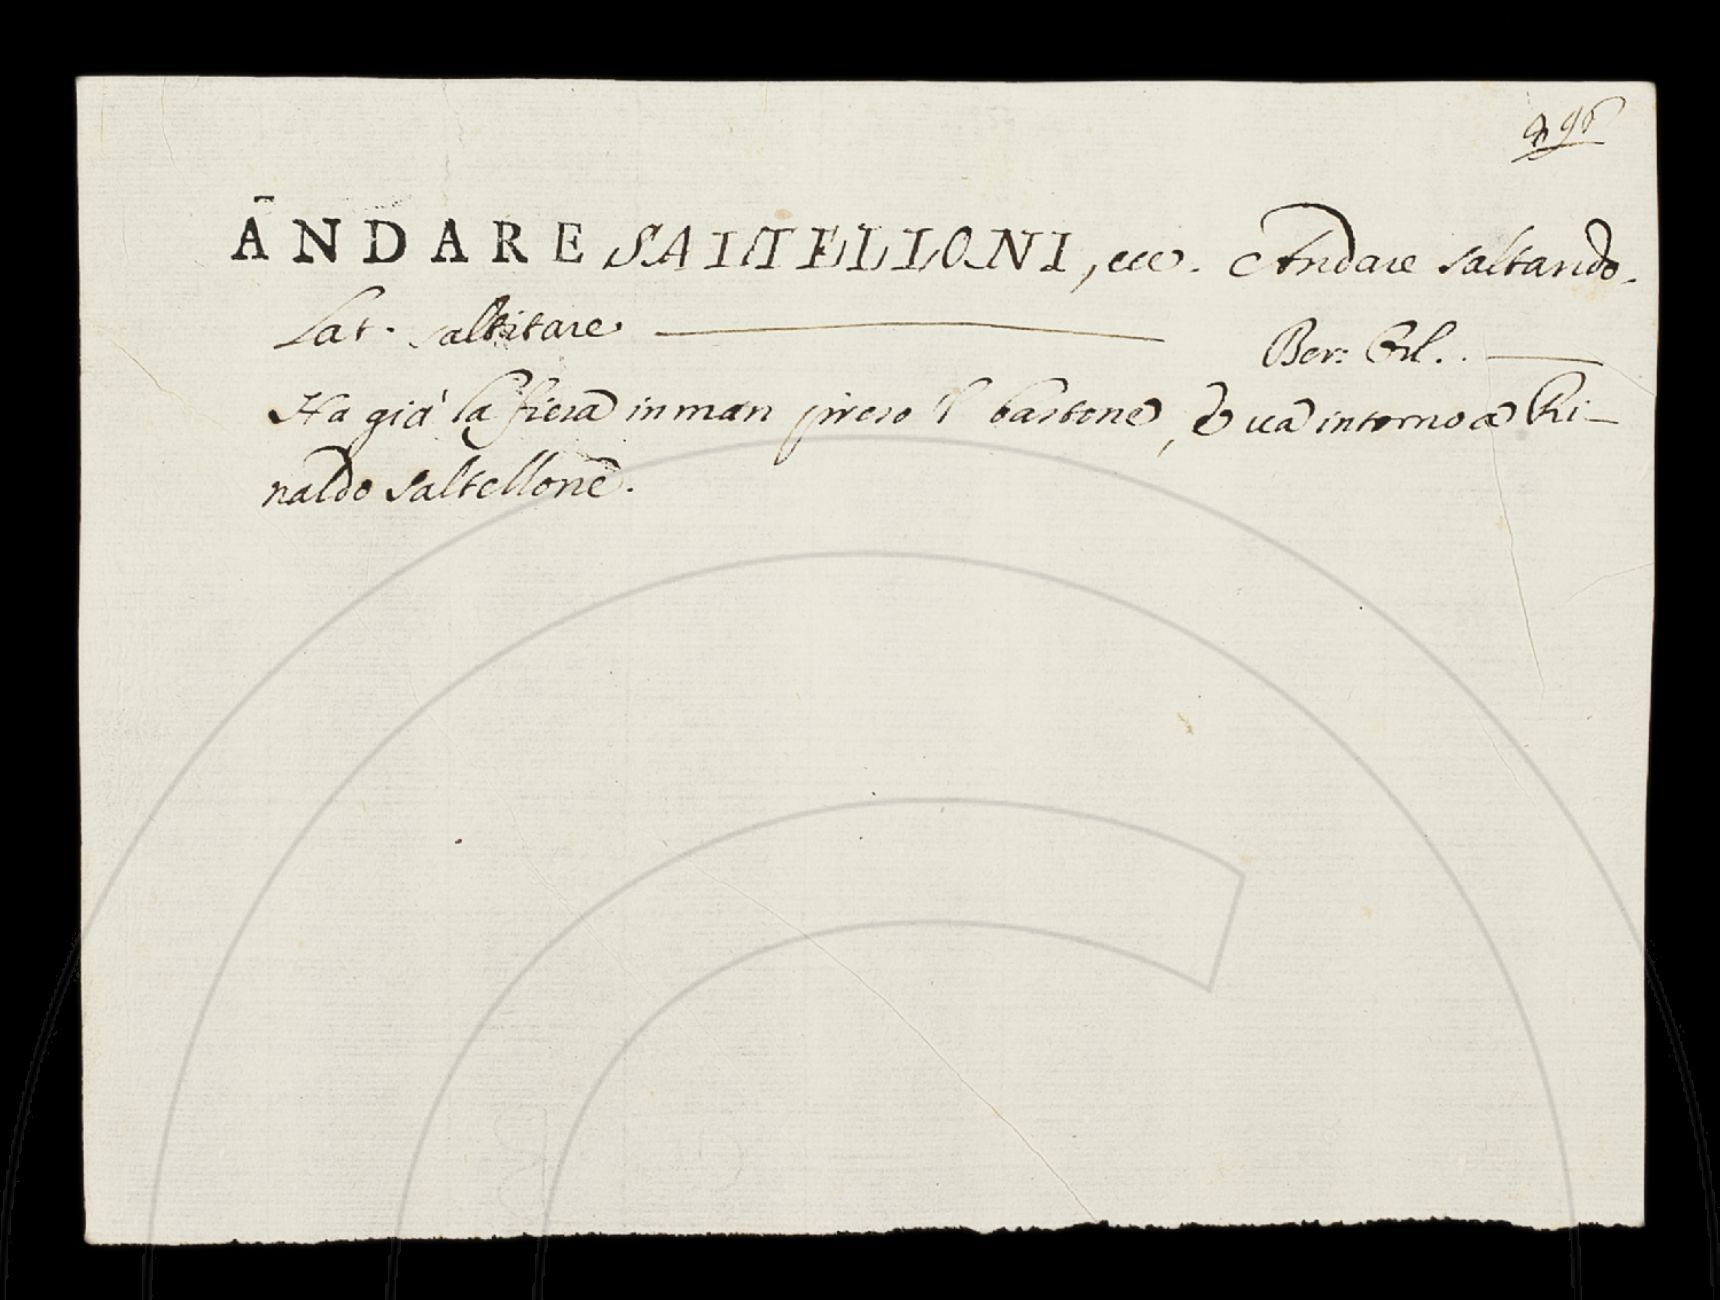 ĀNDARE SALTELLONI, ecc. Andare saltando.
Lat. saltitare
Ber: Orl.
Ha già la fiera in man preso 'l bastone, e va intorno a Ri-
naldo saltellone.